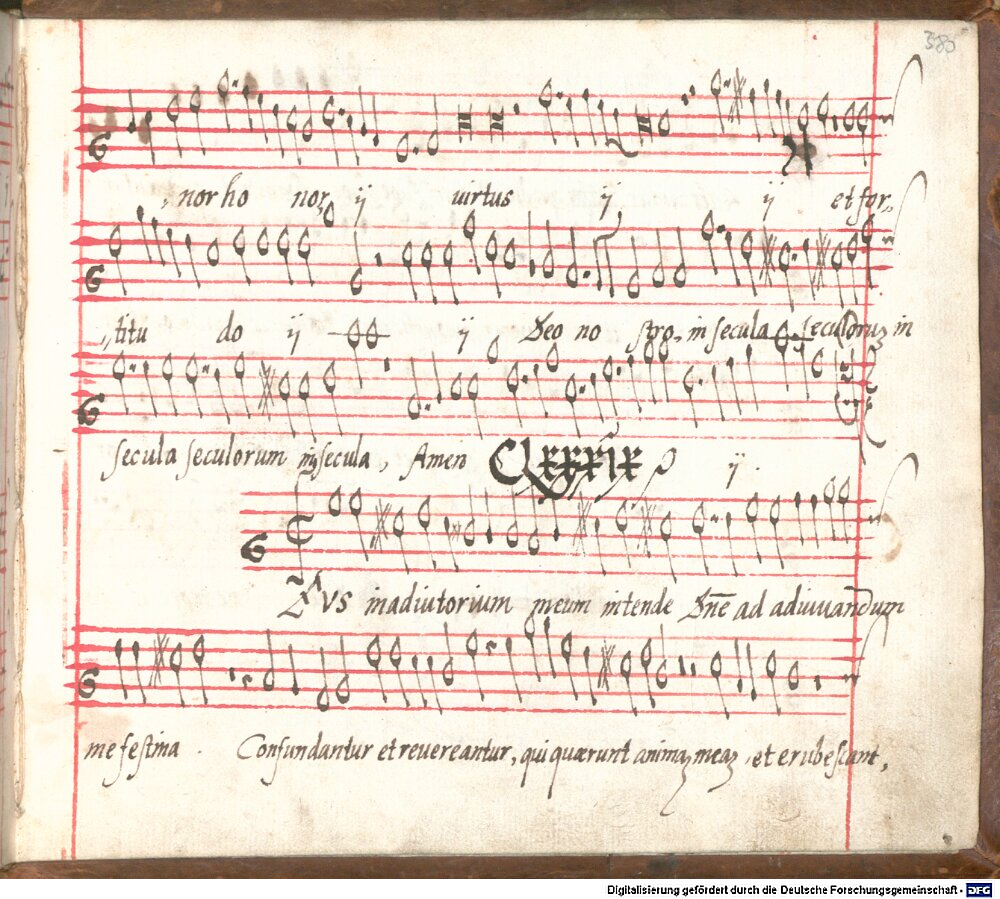 385
nor ho noꝝ ij virtus ij ij et for,
,,titu do ij ij Deo no stro, in secula seculoruʒ in
secula seculorum inʒ secula, Amen CLXXXIX ij.
EVS in adiutorium meum intende Dn̄e ad adiuuandum
me festina. Confundantur et reuereantur, qui quærunt animaʒ meaʒ, et erubescant,
Digitalisierung gefördert durch die Deutsche Forschungsgemeinschaft - DFG